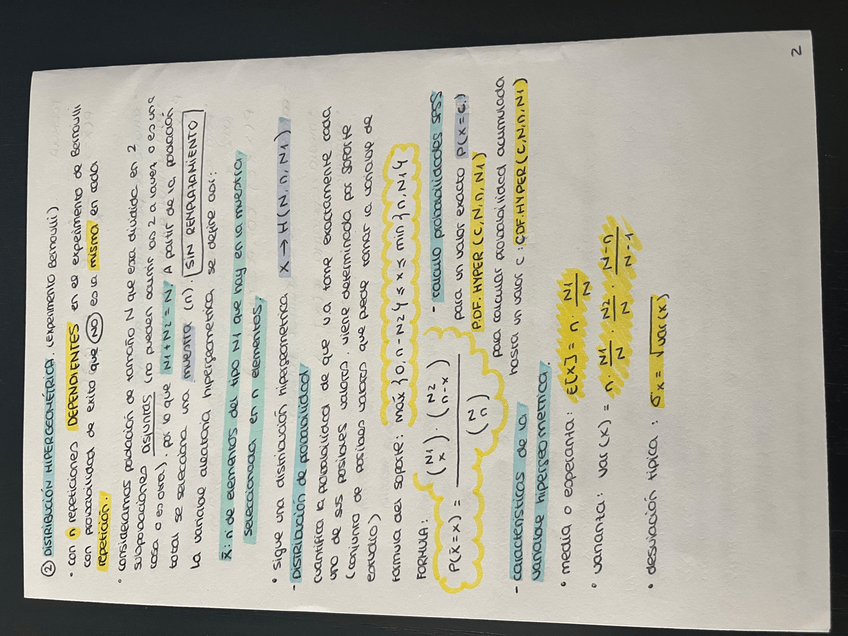 ② DISTRIBUCIÓN HIPERGEOMÉTRICA. (experimento Bernoulli)
· con n repeticiones DEPENDIENTES en el experimento de Bernoulli
con probabilidad de exito que NO es la misma en cada
repetición.
· consideramos población de tamaño N que esta dividida en 2
subpoblaciones disjuntas (no pueden ocurrir las 2 a la vez o es una
cosa o es otra). por lo que N1 + N2 = N. A partir de la población
total se selecciona una muestra (n). SIN REMPLAZAMIENTO
La variable aleatoria hipergeometrica se define asi:
X: n de elementos del tipo N1 que hay en la muestra
seleccionada en n elementos.
· sigue una distribución hipergeometrica X → H(N, n, N1)
- DISTRIBUCIÓN de probabilidad
cuantifica la probabilidad de que v.a tome exactamente cada
uno de sus posibles valores. viene determinada por soporte
(conjunto de posibles valores que puede tomar la variable de
estudio)
Formula del soporte: max {0, n - N2} ≤ x ≤ min {n, N1}
FORMULA:
P(X=x) = (N1 x) · (N2 n-x) / (N n)
- calculo probabilidades SPSS
para un valor exacto P(X = c)
PDF. HYPER (C, N, n, N1)
para calcular probabilidad acumulada
hasta un valor c: CDF. HYPER (C, N, n, N1)
- características de la
variable hipergeometrica.
· media o esperanza: E[X] = n · N1/N
· varianza: Var (X) = n · N1/N · N2/N · N-n/N-1
· desviación típica: σx = √var(x)
2